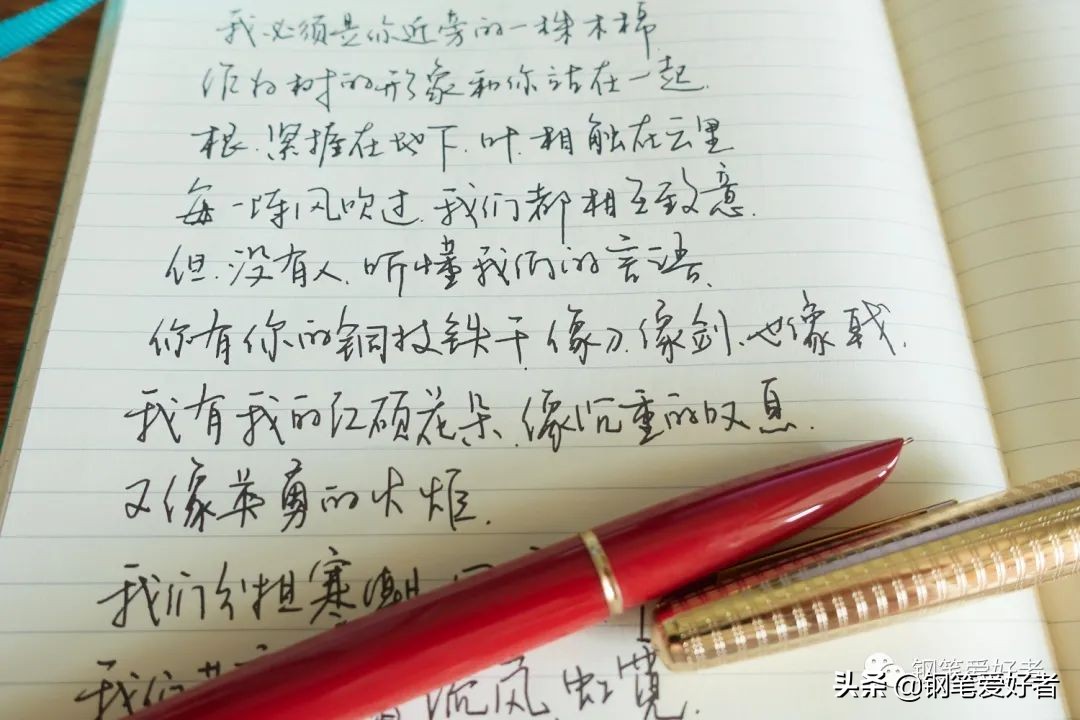 我必须是你近旁的一株木棉
作为树的形象和你站在一起.
根.紧握在地下.叶.相触在云里
每一阵风吹过.我们都相互致意.
但.没有人.听懂我们的言语.
你有你的铜枝铁干.像刀.像剑.也像戟.
我有我的红硕花朵.像沉重的叹息.
又像英勇的火炬.
我们分担寒潮
我们共
流风
虹霓.
钢笔爱好者
头条 @钢笔爱好者